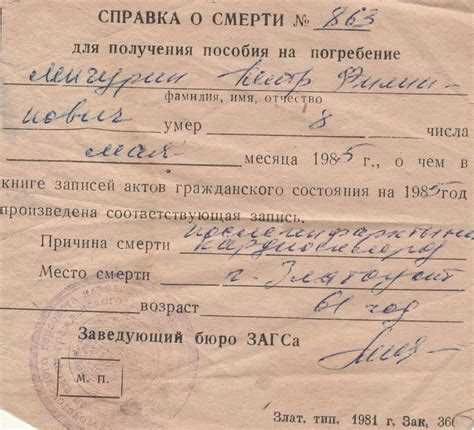 СПРАВКА О СМЕРТИ № 863
для получения пособия на погребение
Мичурин Петр Филип-
фамилия, имя, отчество
пович умер 8 числа
мая месяца 1985 г., о чем в
книге записей актов гражданского состояния на 1985 год
произведена соответствующая запись.
Причина смерти постинфарктный
кардиосклероз
Место смерти г. Златоуст
возраст 61 год
Заведующий бюро ЗАГСа
М. П.
Злат. тип. 1981 г. Зак. 366